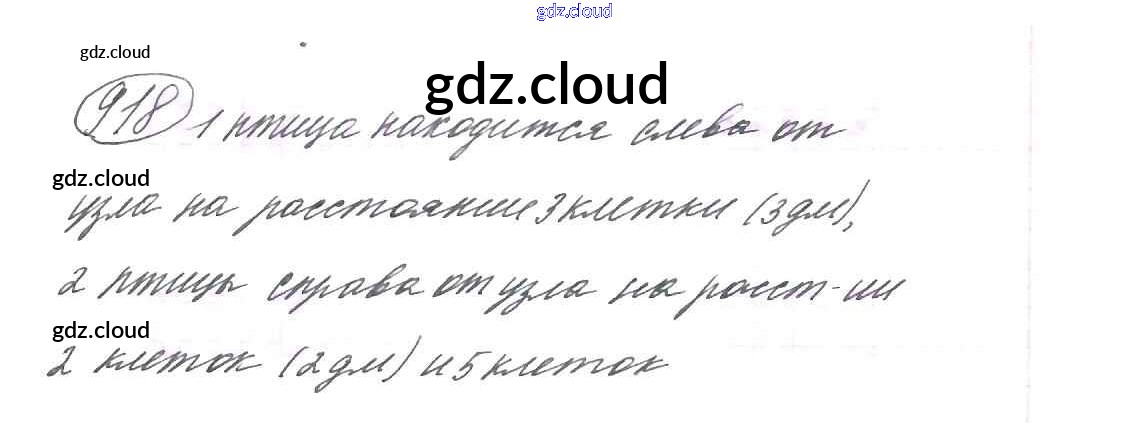 gdz.cloud
gdz.cloud
gdz.cloud
918 1 птица находится слева от
gdz.cloud
узла на расстоянии 3 клетки (3 дм),
2 птицы справа от узла на расст-ии
gdz.cloud
2 клеток (2 дм) и 5 клеток